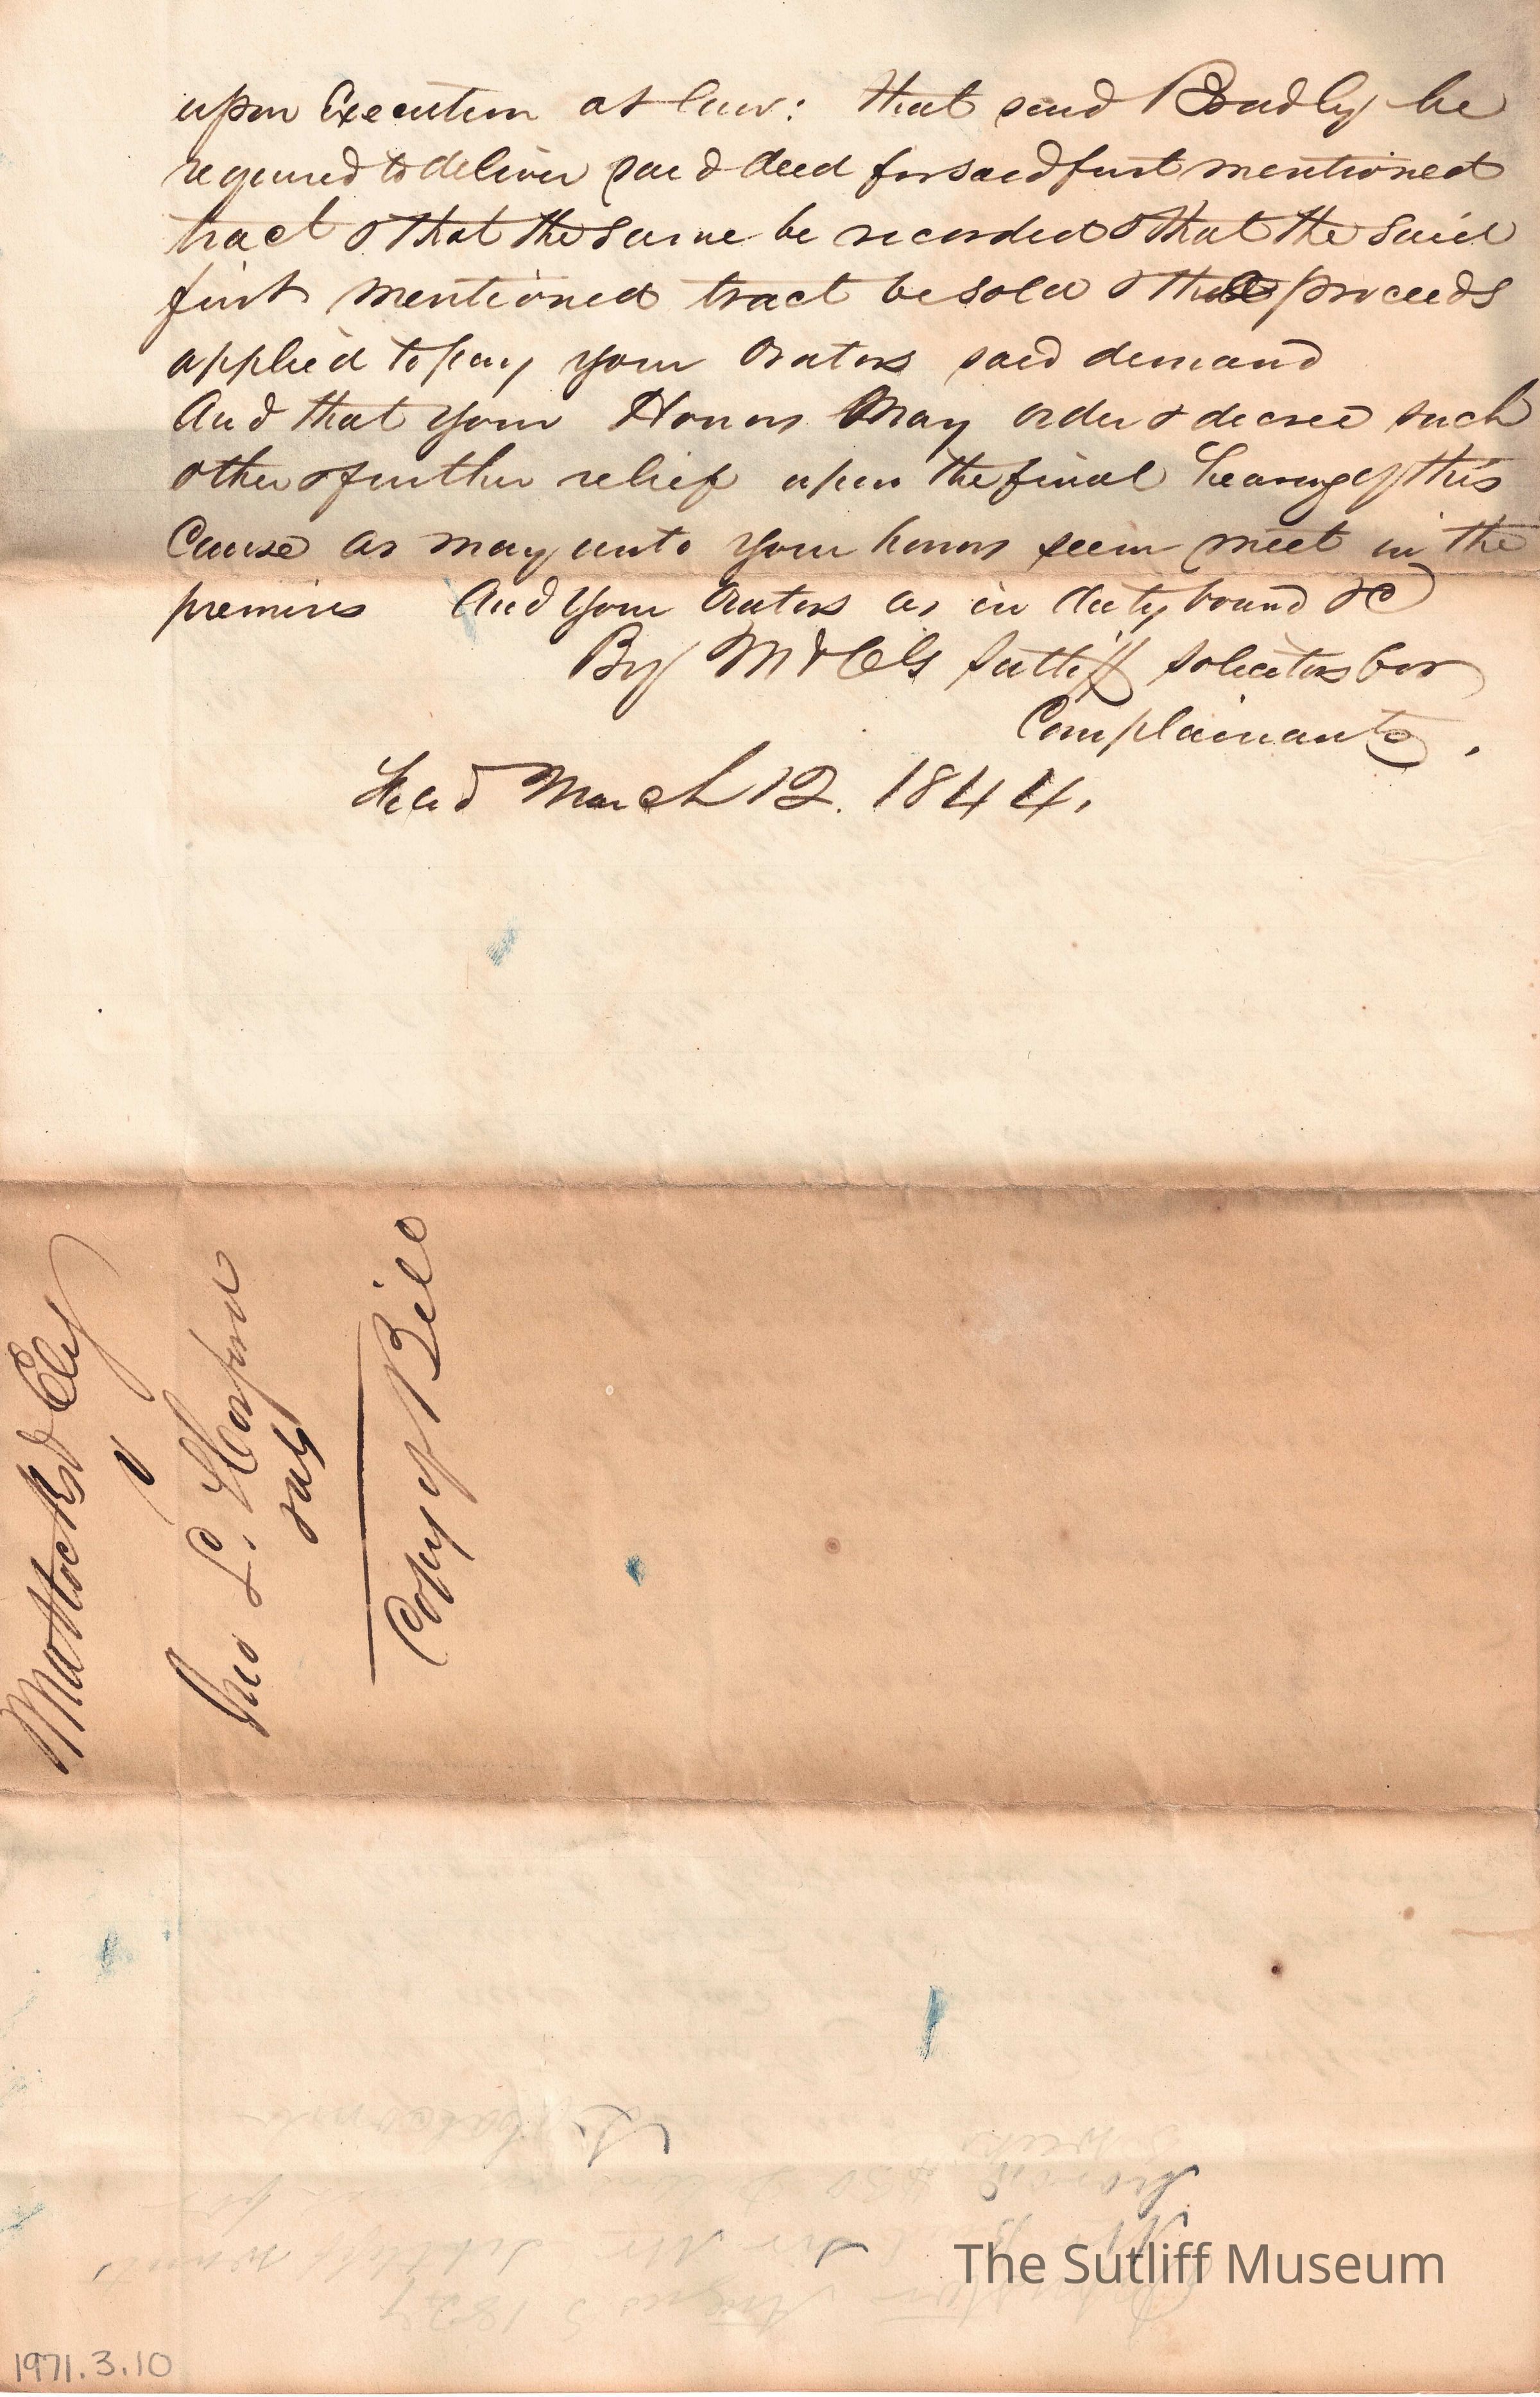 upon Execution at law: that said Bradly be
required to deliver said deed for said first mentioned
tract & that the same be recorded & that the said
first mentioned tract be sold & the proceeds
applied to pay your Orators said demand
And that your Honors May order & decree such
other & further relief upon the final hearing of this
Cause as may unto your honors seem meet in the
premises And your Orators as in duty bound &c
By M & C G Sutliff solicitors for
Complainants.
Filed March 12. 1844.
Mattock & Ely
v
Jno L.
Copy of Bill
1824
The Sutliff Museum
1971.3.10